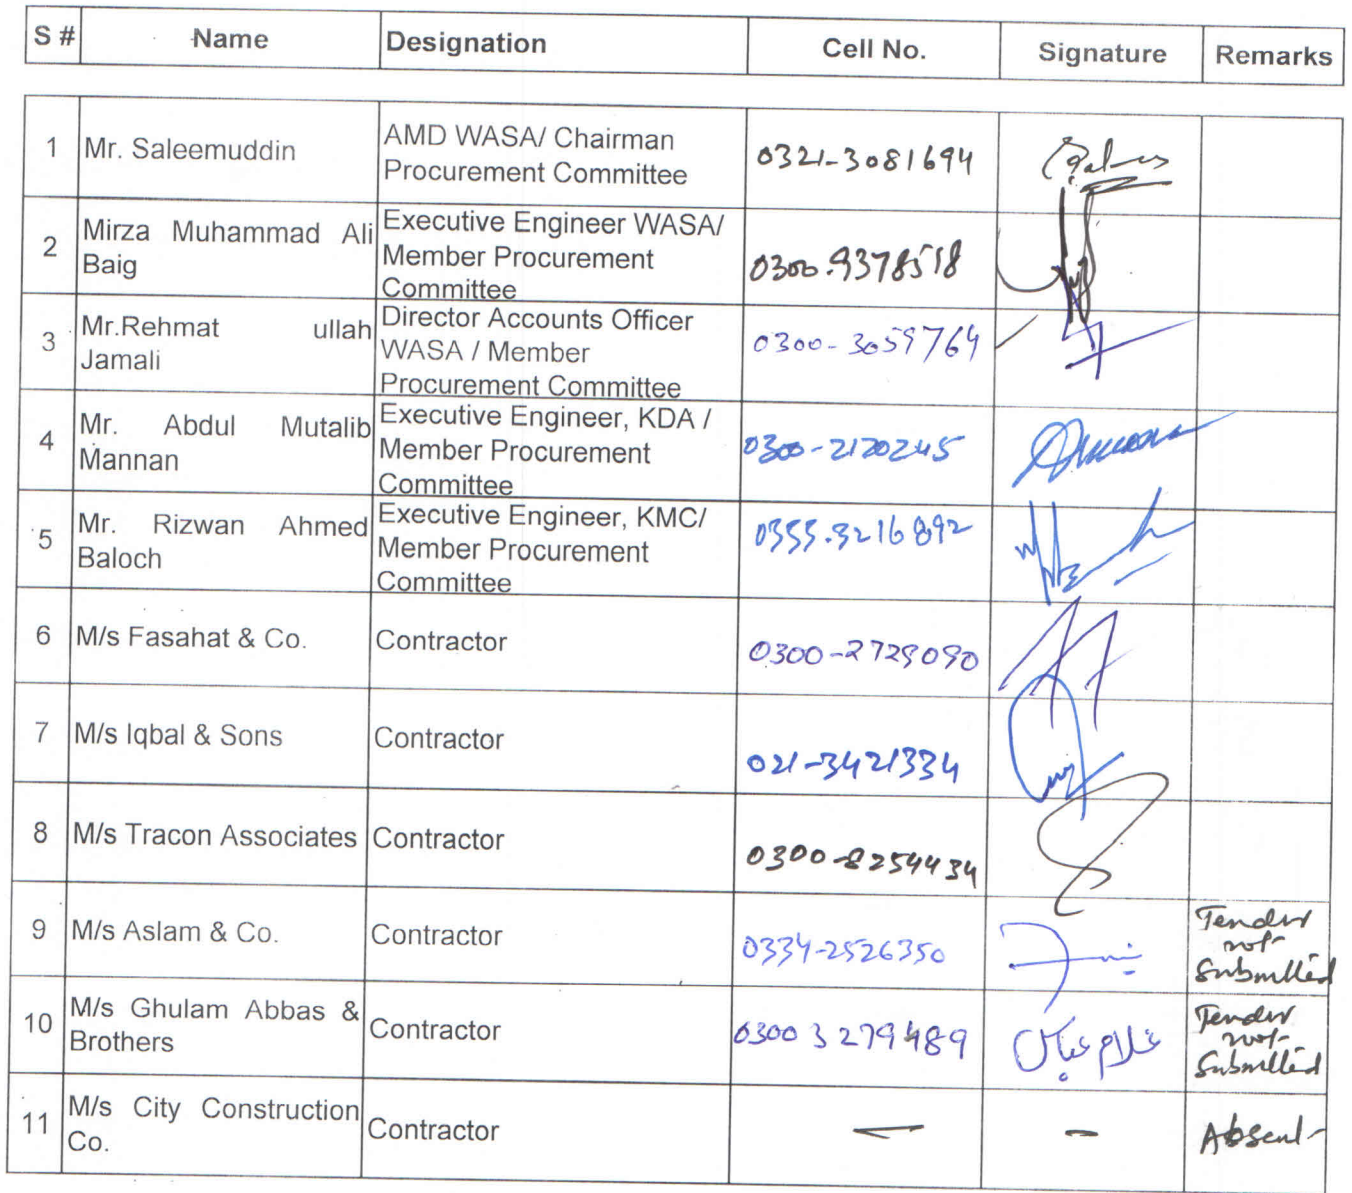 S # Name Designation Cell No. Signature Remarks
1 Mr. Saleemuddin AMD WASA/ Chairman
Procurement Committee 0321-3081694
2 Mirza Muhammad Ali
Baig Executive Engineer WASA/
Member Procurement
Committee 0300.9378518
3 Mr.Rehmat ullah
Jamali Director Accounts Officer
WASA / Member
Procurement Committee 0300-3059764
4 Mr. Abdul Mutalib
Mannan Executive Engineer, KDA /
Member Procurement
Committee 0300-2120245
5 Mr. Rizwan Ahmed
Baloch Executive Engineer, KMC/
Member Procurement
Committee
6 M/s Fasahat & Co. Contractor 0300-2729090
7 M/s Iqbal & Sons Contractor 021-3421334
8 M/s Tracon Associates Contractor 0300-8254434
9 M/s Aslam & Co. Contractor 0334-2526350 Tender
not
Submitted
10 M/s Ghulam Abbas &
Brothers Contractor 0300 3279489 غلام عباس Tender
not
Submitted
11 M/s City Construction
Co. Contractor — - Absent